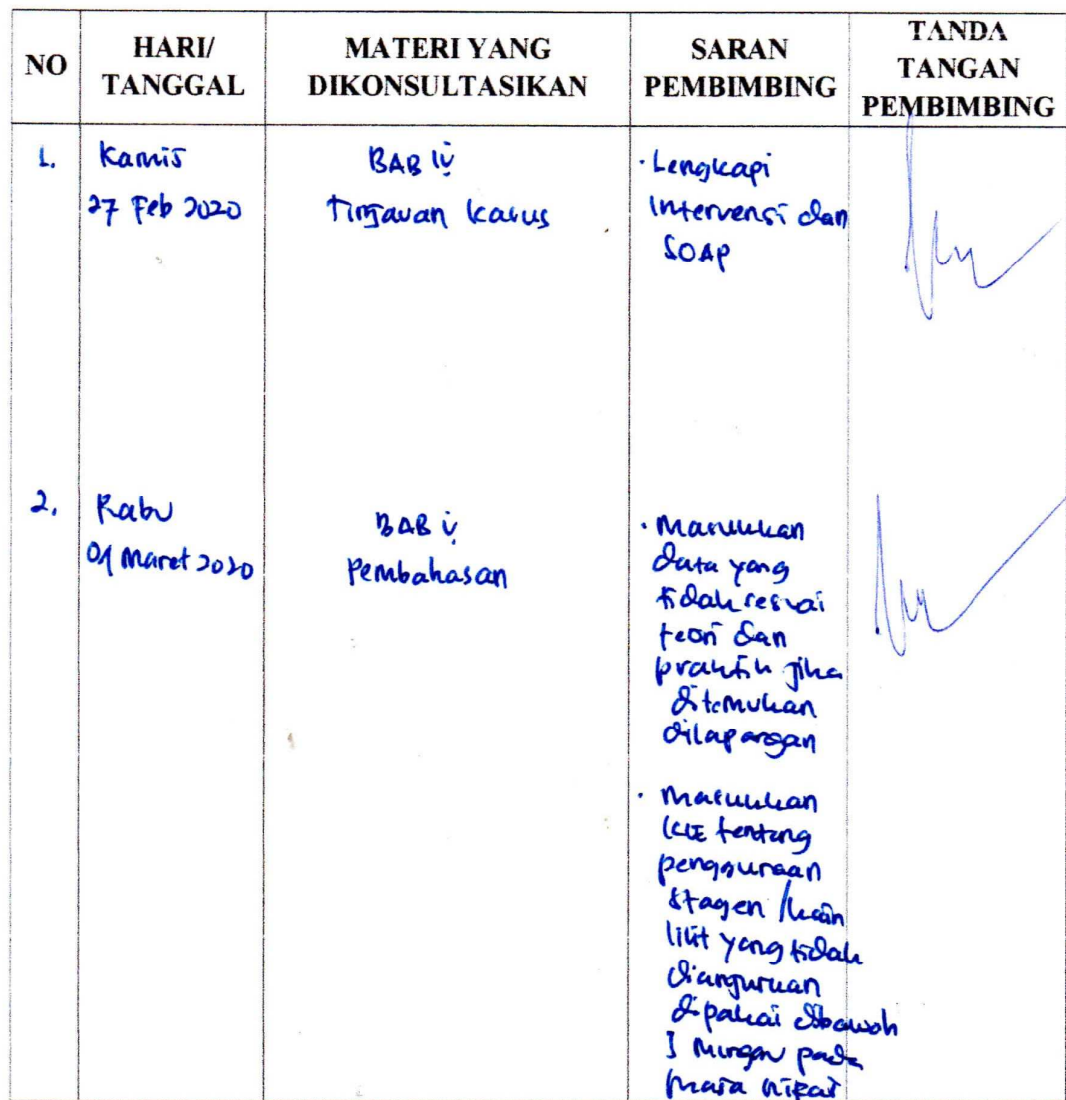 NO
HARI/
TANGGAL
MATERI YANG
DIKONSULTASIKAN
SARAN
PEMBIMBING
TANDA
TANGAN
PEMBIMBING
1.
Kamis
27 Feb 2020
BAB IV
Tinjauan kasus
· Lengkapi
Intervensi dan
SOAP
2.
Rabu
Maret 2020
BAB V
Pembahasan
· Masukkan
data yang
tidak sesuai
teori dan
praktik jika
ditemukan
dilapangan
· Masukkan
KIE tentang
penggunaan
stagen / kain
lilit yang tidak
dianjurkan
dipakai dibawah
1 minggu pada
masa nifas